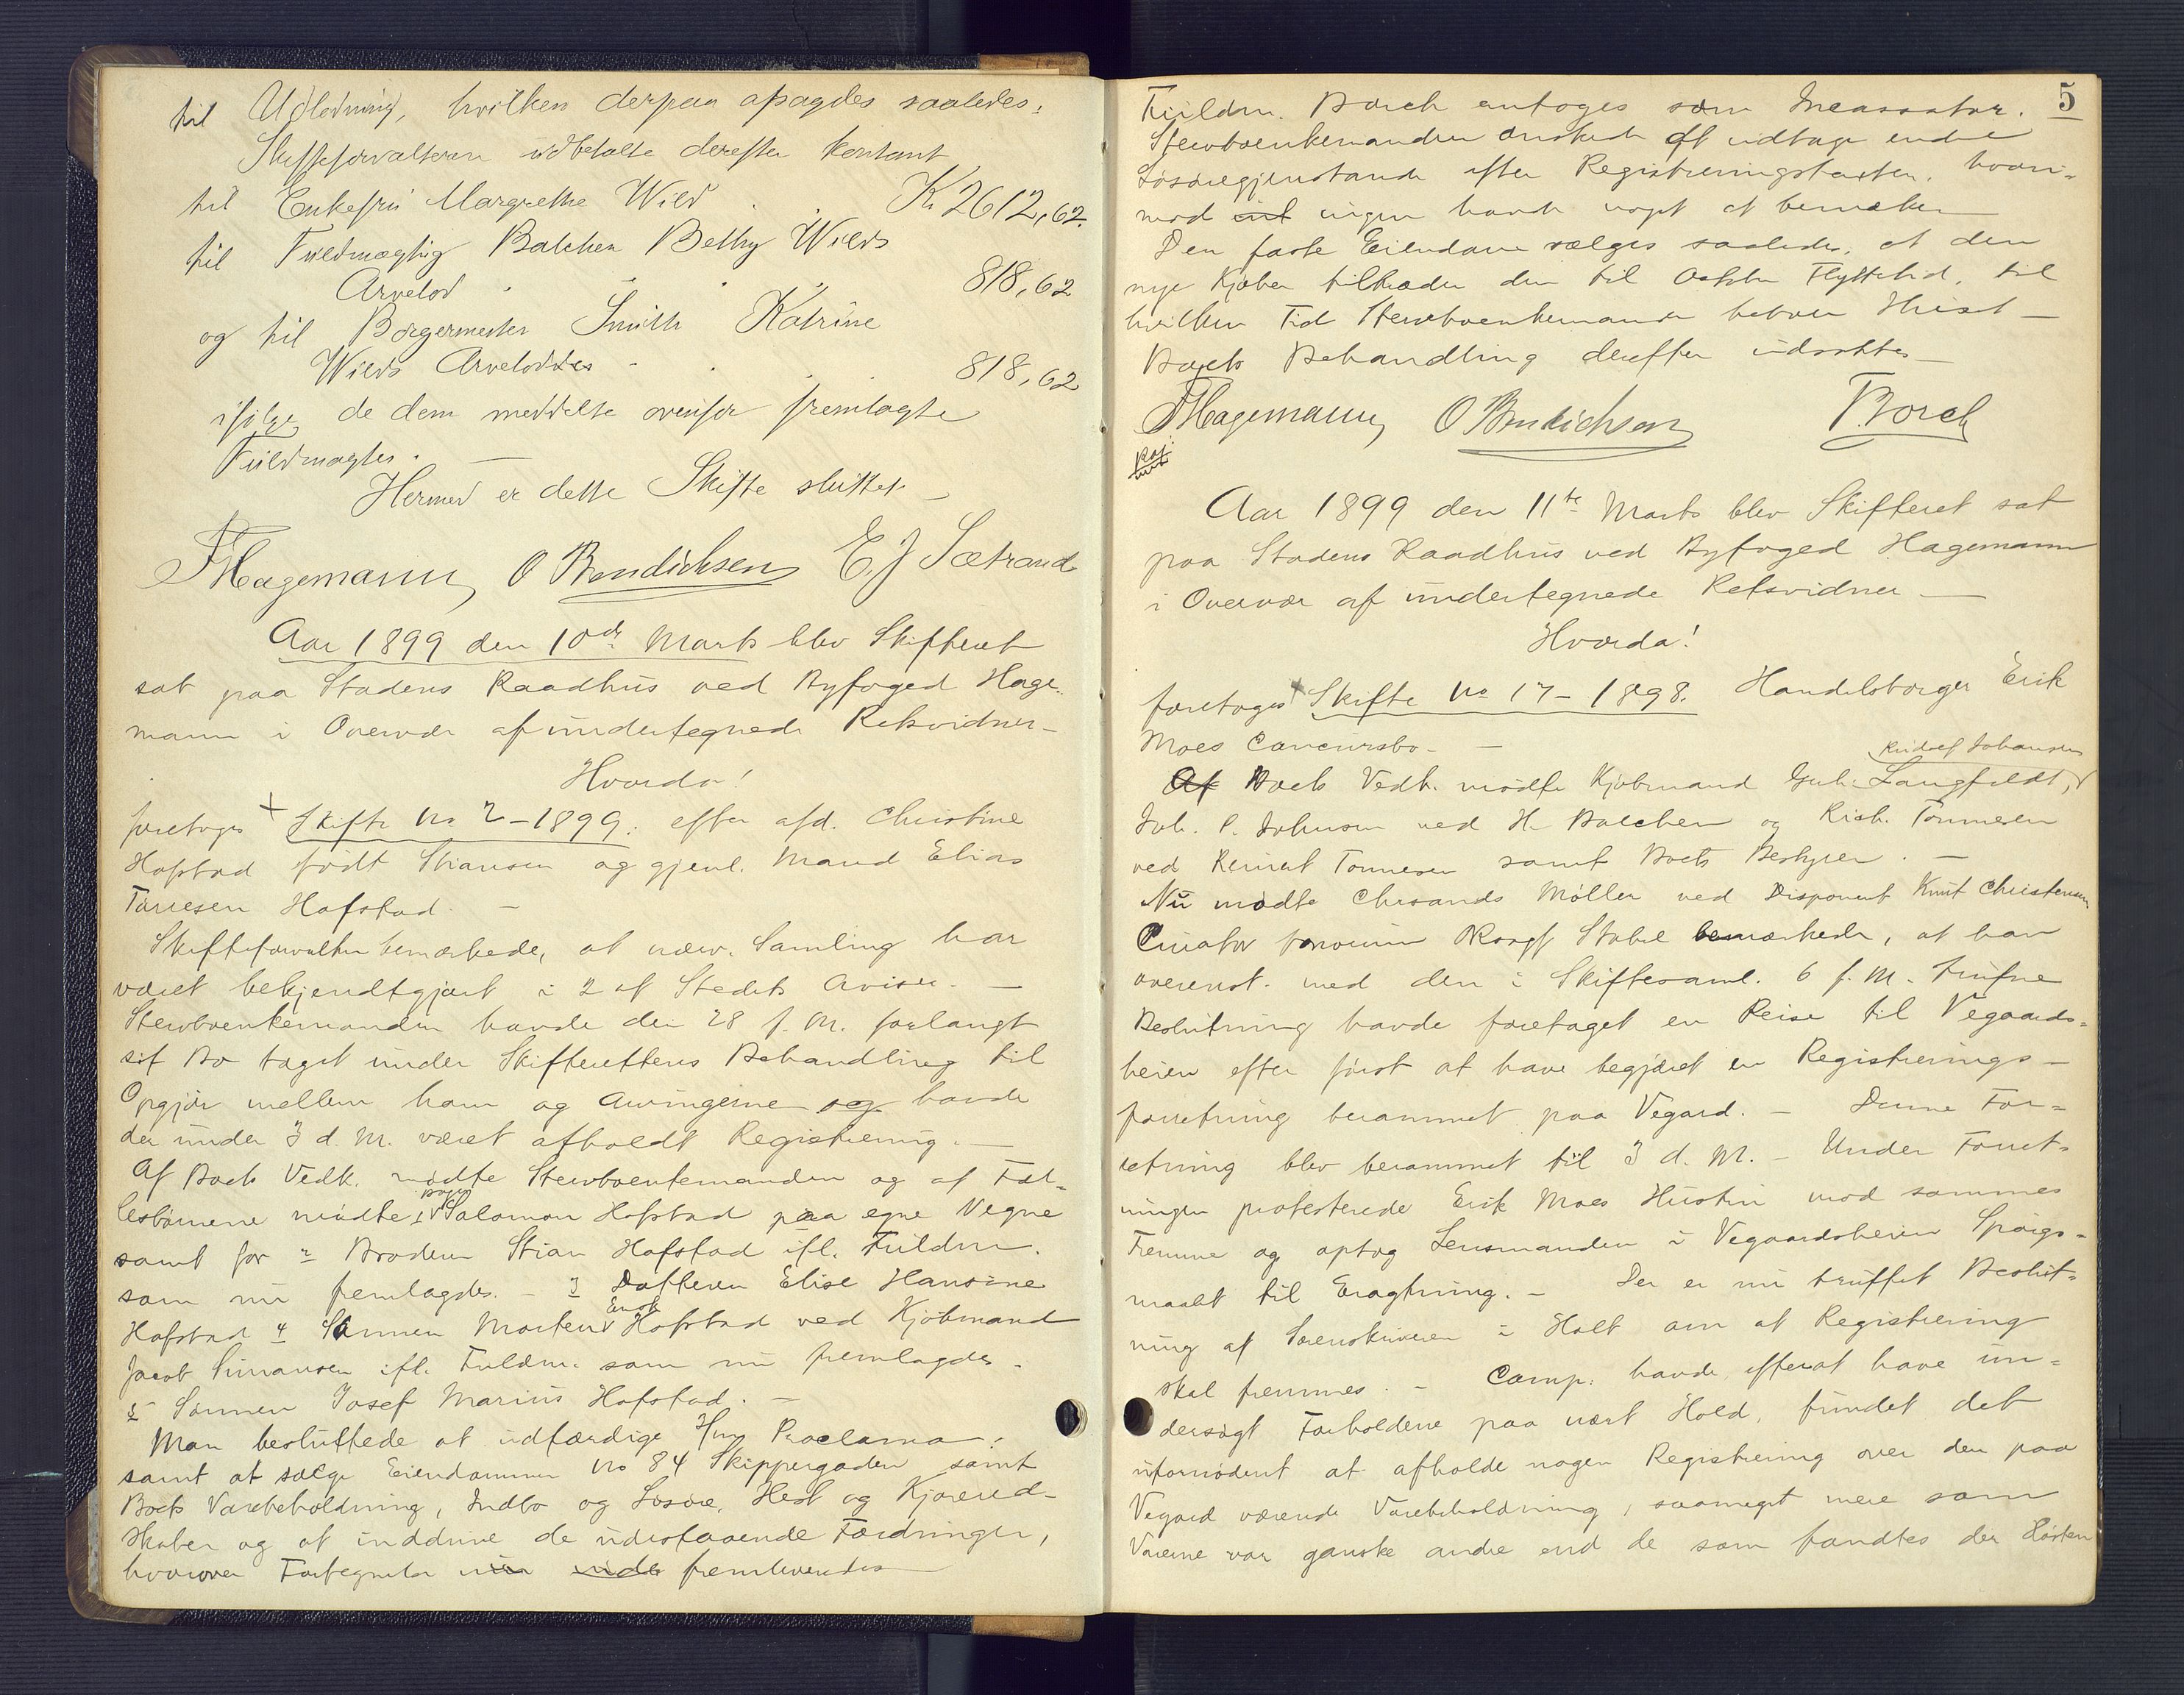 til Udlodning, hvilken derpaa afsagdes saaledes:
Skifteforvalteren udbetalte derefter kontant
til Enkefru Margrethe Wild . . K 2612,62.
til Fuldmægtig Balchen Bethy Wilds
Arvelod . . . 818,62
og til Borgermester Smith Katrine
Wilds Arvelod . . . 818,62
ifølge de dem meddelte ovenfor fremlagte
Fuldmagter. —
Hermed er dette Skifte sluttet. —
Hagemann O Bendichsen E. J Sætrand
Aar 1899 den 10de Marts blev Skifteret
sat paa Stadens Raadhus ved Byfoged Hage-
mann i Overvær af undertegnede Retsvidner —
Hvorda!
foretoges Skifte No 2 – 1899: efter afd. Christine
Hofstad født Stiansen og gjenl. Mand Elias
Tørresen Hofstad. —
Skifteforvalter bemærkede, at nærv. Samling har
været bekjendtgjort i 2 af Stedets Aviser. —
Stervboenkemanden havde den 28 f. M. forlangt
sit Bo taget under Skifterettens Behandling til
Opgjør mellem ham og Arvingerne og havde
der under 3 d. M. været afholdt Registrering. —
Af Boets Vedk. mødte Stervboenkemanden og af Fæl-
lesbørnene mødte 1 Salomon Hofstad paa egne Vegne
samt for 2 Broderen Stian Hofstad ifl. Fuldm.
som nu fremlagdes. – 3 Datteren Elise Hansine
Hofstad 4 Sønnen Morten Enok Hofstad ved Kjøbmand
Jacob Simonsen ifl. Fuldm. som nu fremlagdes –
5 Sønnen Josef Marius Hofstad. —
Man besluttede at udfærdige Proclama
samt at sælge Eiendommen No 84 Skippergaden samt
Boets Varebeholdning, Indbo og Løsøre, Hest og Kjøréred-
skaber og at inddrive de udestaaende Fordringer,
hvorover Fortegnelse fremleveredes —
5
Fuldm. Borch antoges som Incassator.
Stervboenkemanden ønskede at udtage endel
Løsøregjenstande efter Registreringstaxten, hvori-
mod ingen havde noget at bemærke
Den faste Eiendom sælges saaledes, at den
nye Kjøber tiltræder den til Oktbr Flyttetid, til
hvilken Tid Stervboenkemanden beboer Huset —
Boets Behandling derefter udsattes —
Hagemann O Bendichsen T. Borch
Aar 1899 den 11te Marts blev Skifteret sat
paa Stadens Raadhus ved Byfoged Hagemann
i Overvær af undertegnede Retsvidner —
Hvorda!
foretoges Skifte No 17 – 1898. Handelsborger Erik
Moes Concursbo. —
Rudolf Johansen
Boets Vedk. mødte Kjøbmand Langfeldt,
Joh. P. Johnsen ved H. Balchen og Rich. Tønnesen
ved Reinert Tønnesen samt Boets Bestyrer. —
Nu mødte Chrsands Møller ved Disponent Knut Christensen
Curator bonorum Stabel bemærkede, at han
overenst. med den i Skiftesaml. 6 f. M. trufne
Beslutning havde foretaget en Reise til Vegaards-
heien efter først at have begjæret en Registrerings-
forretning berammet paa Vegard. — Denne For-
retning blev berammet til 3 d. M. – Under Forret-
ningen protesterede Erik Moes Hustru mod sammes
Fremme og optog Lensmanden i Vegaardsheien Spørgs-
maalet til Eragtning. – Der er nu truffet Beslut-
ning af Sorenskriveren i Holt om at Registrering
skal fremmes. – Comp. havde, efterat have un-
dersøgt Forholdene paa nært Hold, fundet det
ufornødent at afholde nogen Registrering over den paa
Vegard værende Varebeholdning, saameget mere som
Varerne var ganske andre end de som fandtes der Høsten